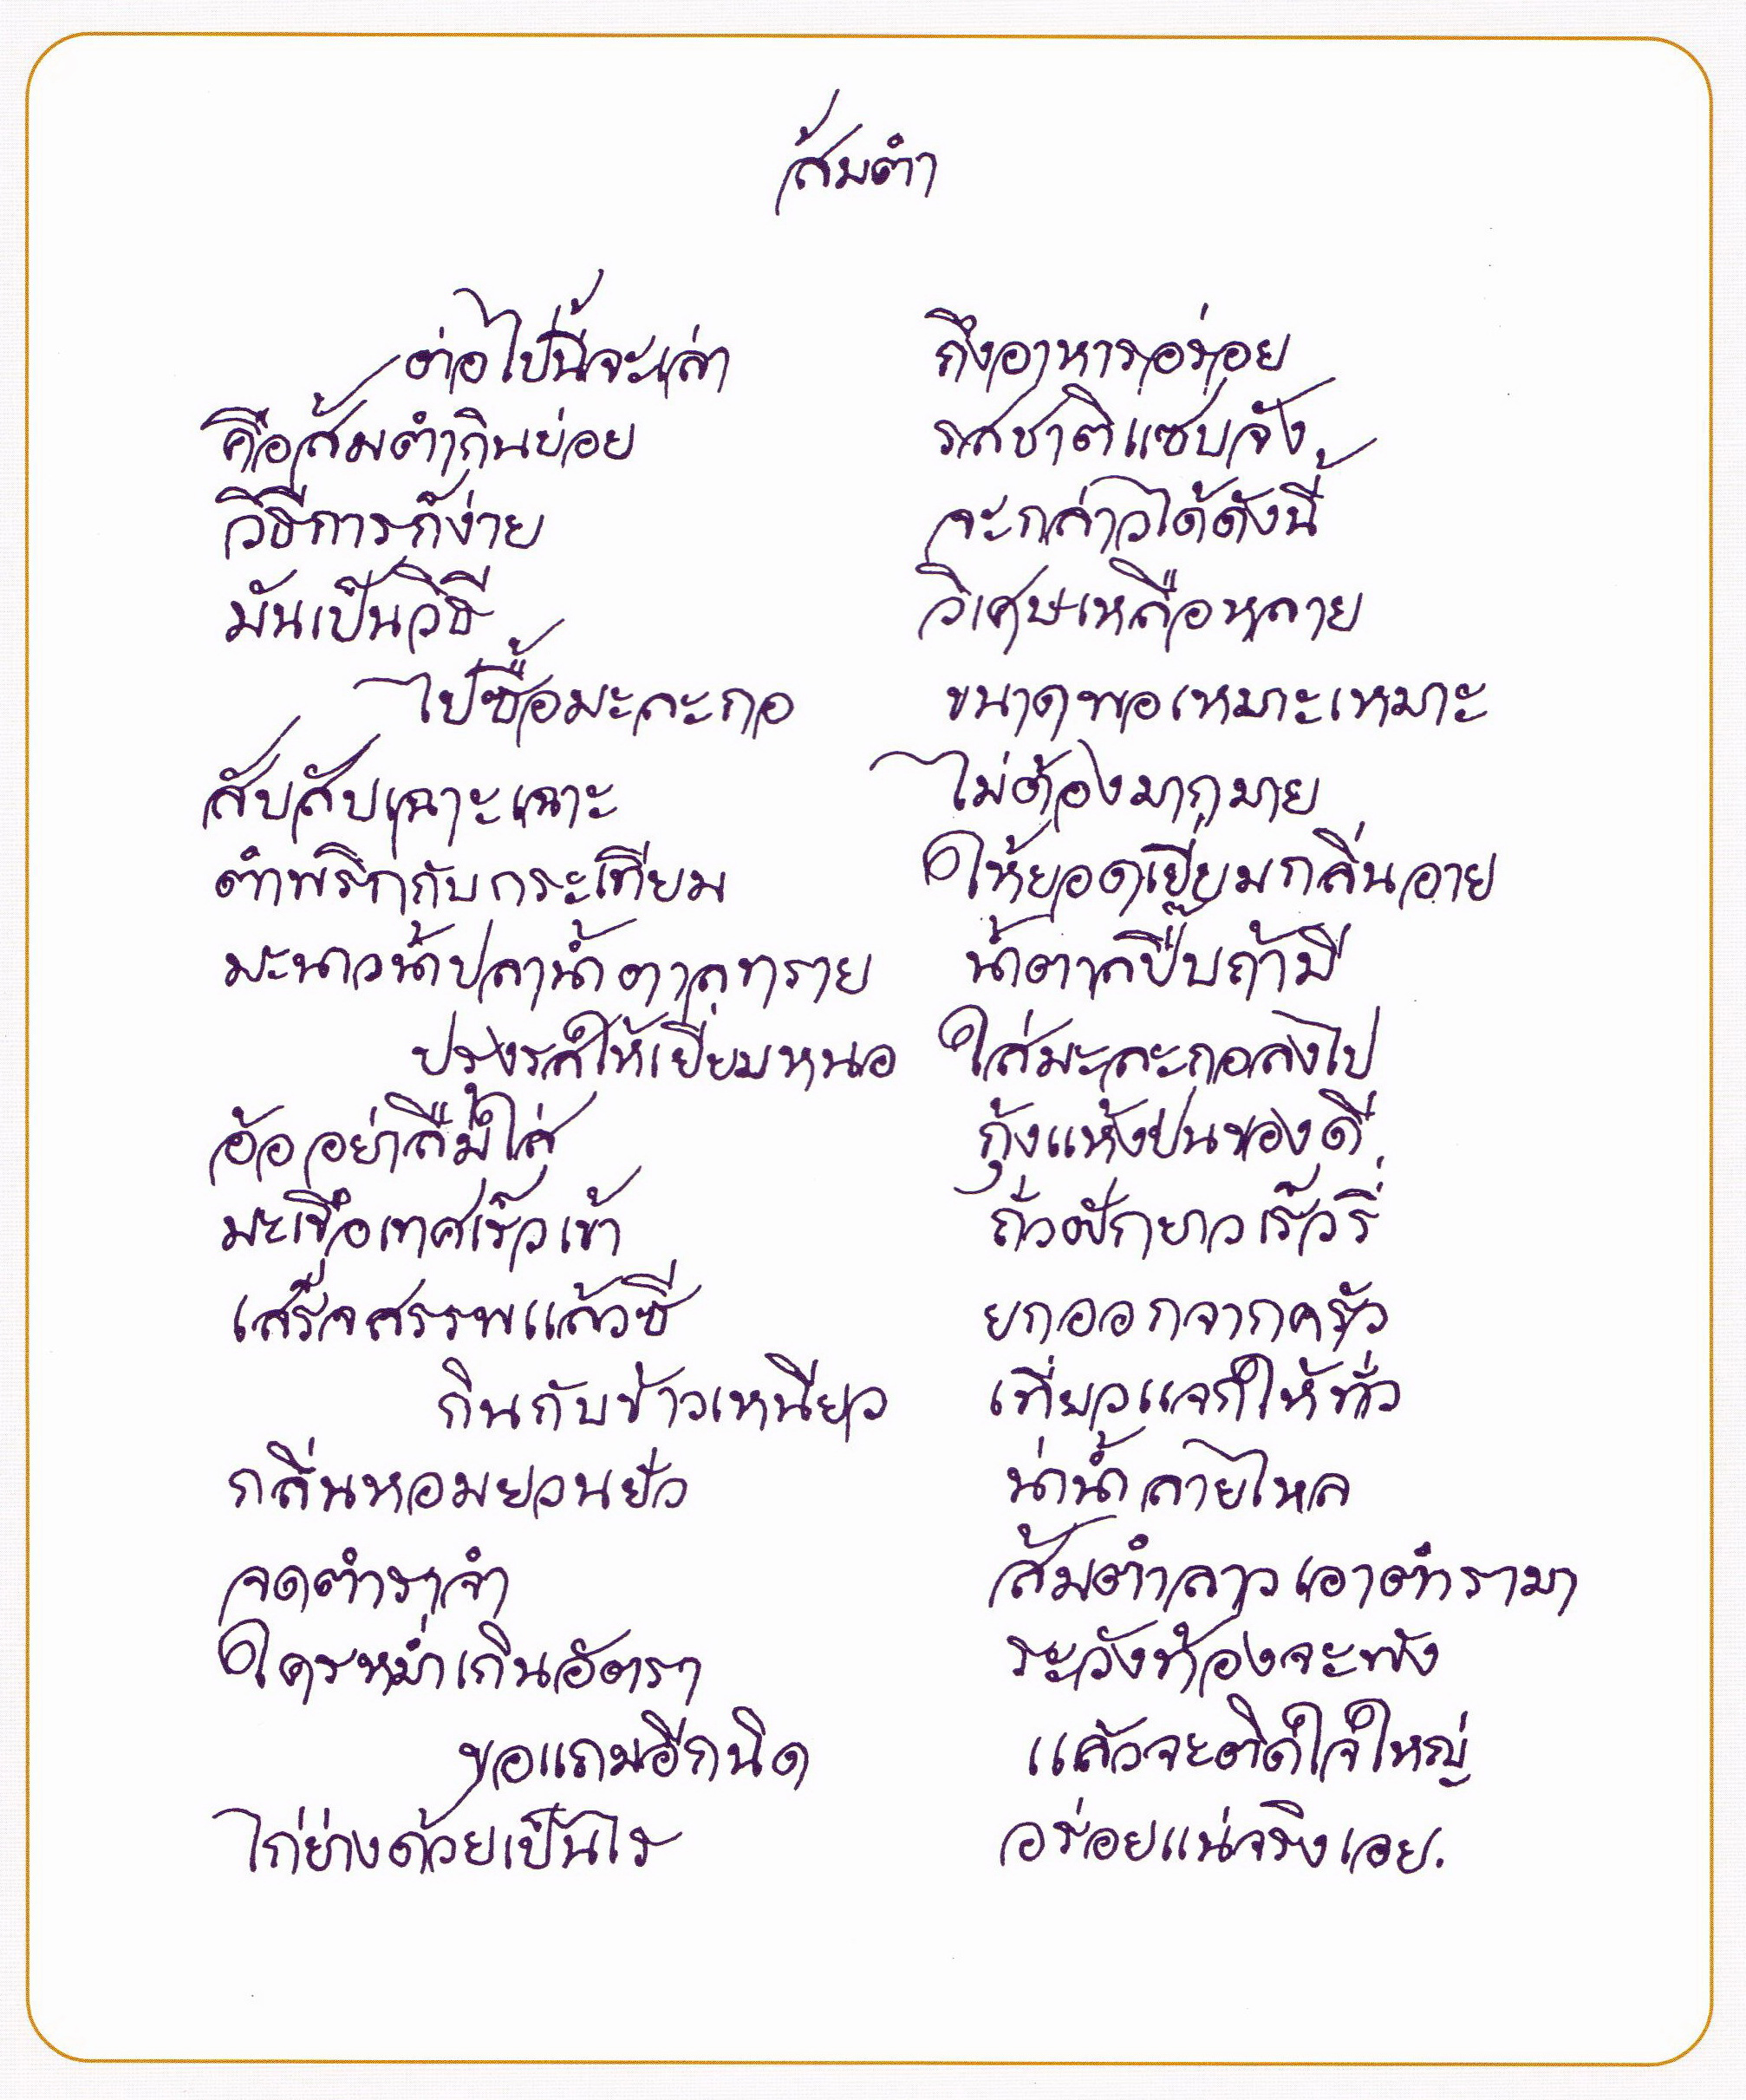 ส้มตำ
ต่อไปนี้จะเล่า ถึงอาหารอร่อย
คือส้มตำกินบ่อย รสชาติแซบจัง
วิธีการก็ง่าย จะกล่าวได้ดังนี้
มันเป็นวิธี วิเศษเหลือหลาย
ไปซื้อมะละกอ ขนาดพอเหมาะเหมาะ
สับสับเฉาะเฉาะ ไม่ต้องมากมาย
ตำพริกกับกระเทียม ให้ยอดเยี่ยมกลิ่นอาย
มะนาวน้ำปลาน้ำตาลทราย น้ำตาลปี๊บถ้ามี
ปรุงรสให้เยี่ยมหนอ ใส่มะละกอลงไป
อ้ออย่าลืมใส่ กุ้งแห้งป่นของดี
มะเขือเทศเร็วเข้า ถั่วฝักยาวเร็วรี่
เสร็จสรรพแล้วซี ยกออกจากครัว
กินกับข้าวเหนียว เที่ยวแจกให้ทั่ว
กลิ่นหอมยวนยั่ว น่าน้ำลายไหล
จดตำราจำ ส้มตำลาวเอาตำรามา
ใครหม่ำเกินอัตรา ระวังท้องจะพัง
ขอแถมอีกนิด แล้วจะติดใจใหญ่
ไก่ย่างด้วยเป็นไร อร่อยแน่จริงเอย.